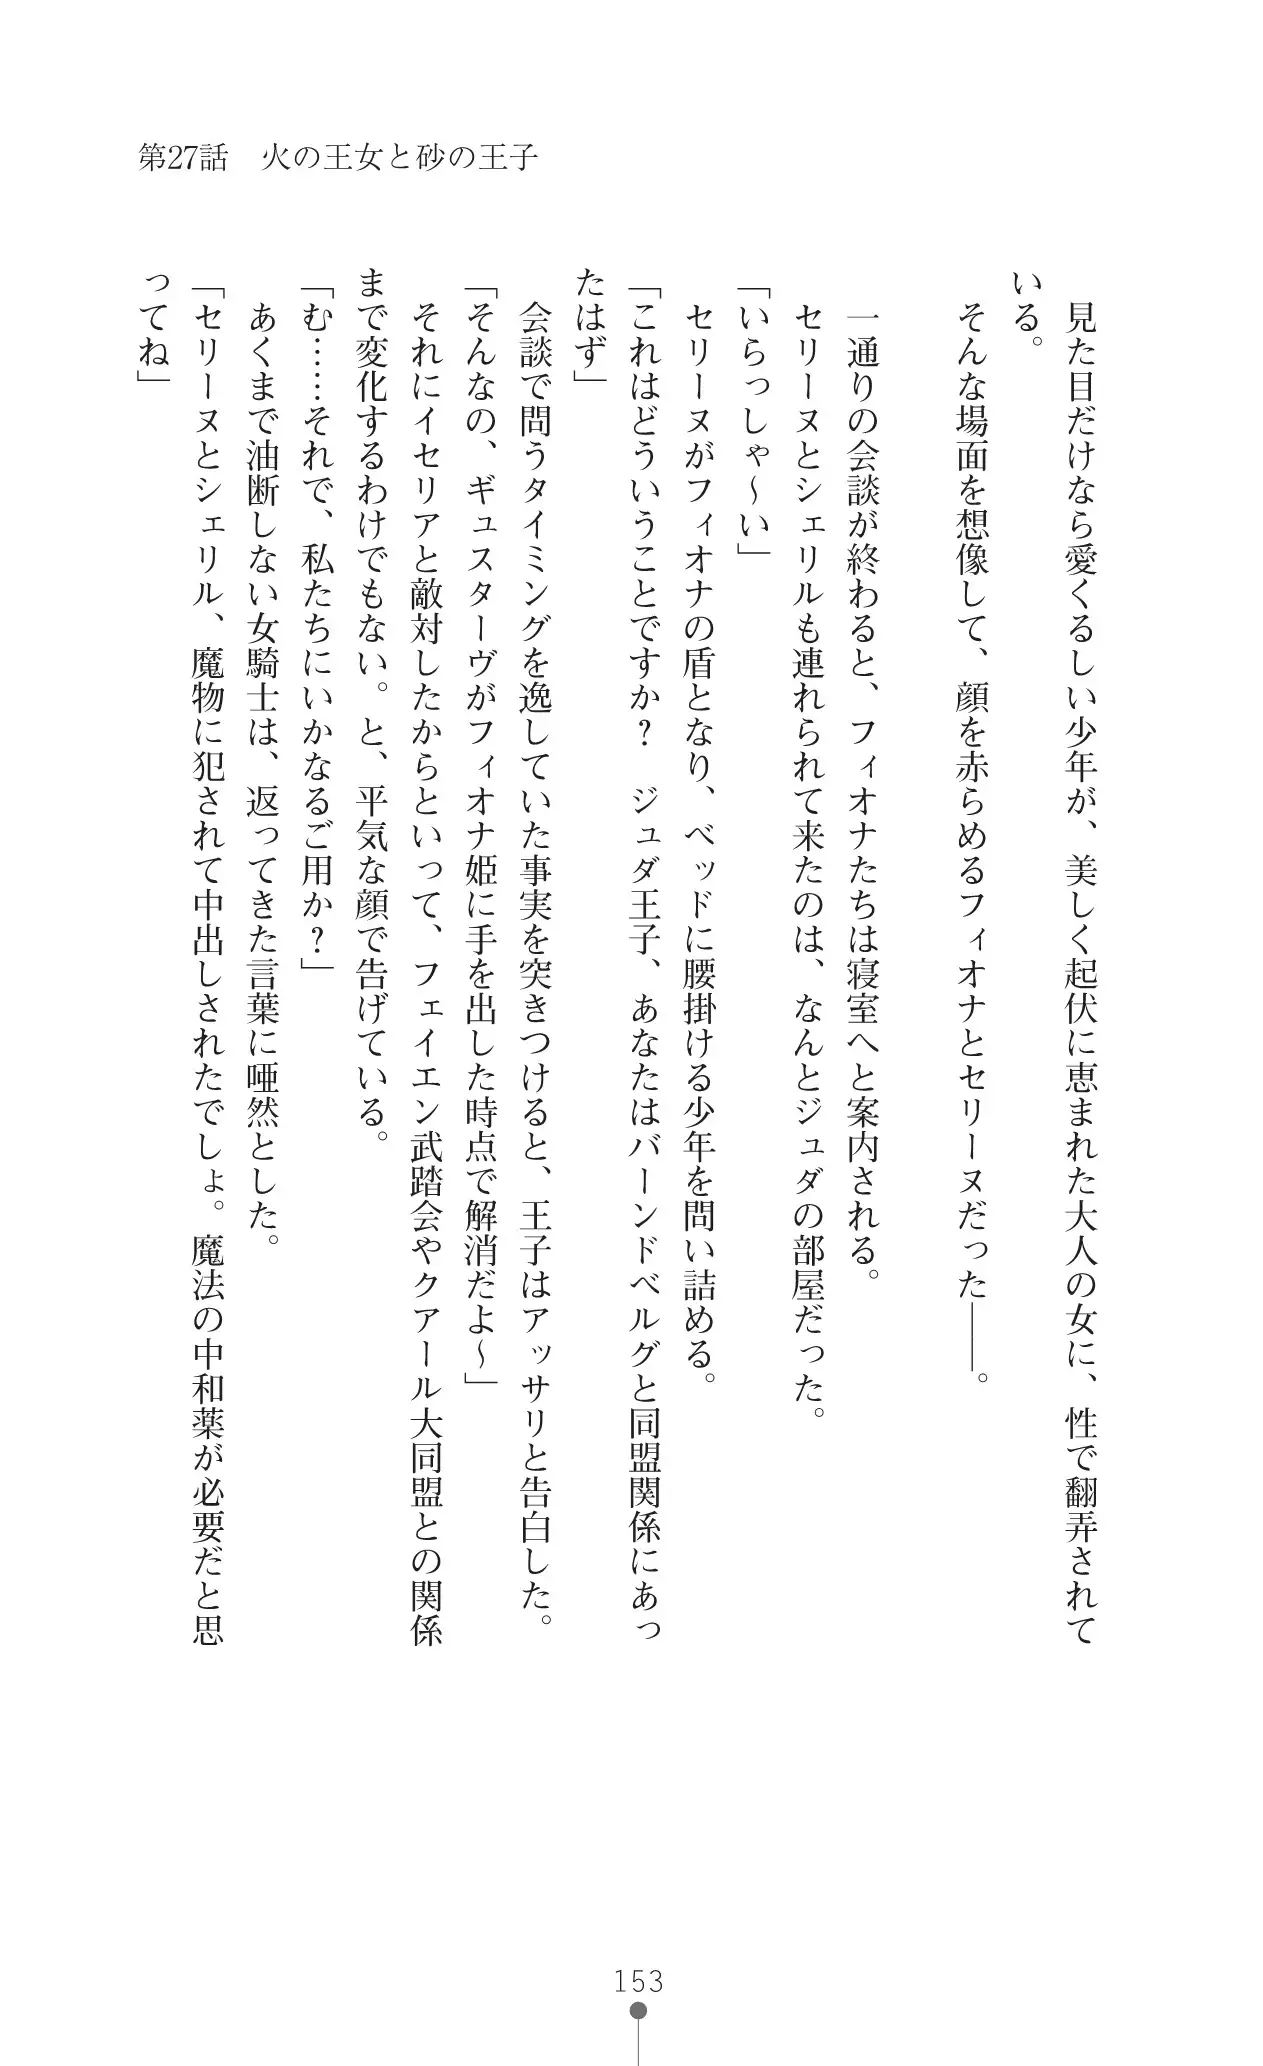 第27話　火の王女と砂の王子
　見た目だけなら愛くるしい少年が、美しく起伏に恵まれた大人の女に、性で翻弄されて
いる。
　そんな場面を想像して、顔を赤らめるフィオナとセリーヌだった――。
　一通りの会談が終わると、フィオナたちは寝室へと案内される。
　セリーヌとシェリルも連れられて来たのは、なんとジュダの部屋だった。
「いらっしゃ～い」
　セリーヌがフィオナの盾となり、ベッドに腰掛ける少年を問い詰める。
「これはどういうことですか？　ジュダ王子、あなたはバーンドベルグと同盟関係にあっ
たはず」
　会談で問うタイミングを逸していた事実を突きつけると、王子はアッサリと告白した。
「そんなの、ギュスターヴがフィオナ姫に手を出した時点で解消だよ～」
　それにイセリアと敵対したからといって、フェイエン武踏会やクアール大同盟との関係
まで変化するわけでもない。と、平気な顔で告げている。
「む……それで、私たちにいかなるご用か？」
　あくまで油断しない女騎士は、返ってきた言葉に唖然とした。
「セリーヌとシェリル、魔物に犯されて中出しされたでしょ。魔法の中和薬が必要だと思
ってね」
153